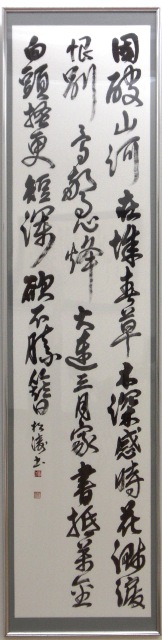 國破山河在城春草木深感時花濺淚
恨別鳥驚心烽火連三月家書抵萬金
白頭搔更短渾欲不勝簪 松濤書